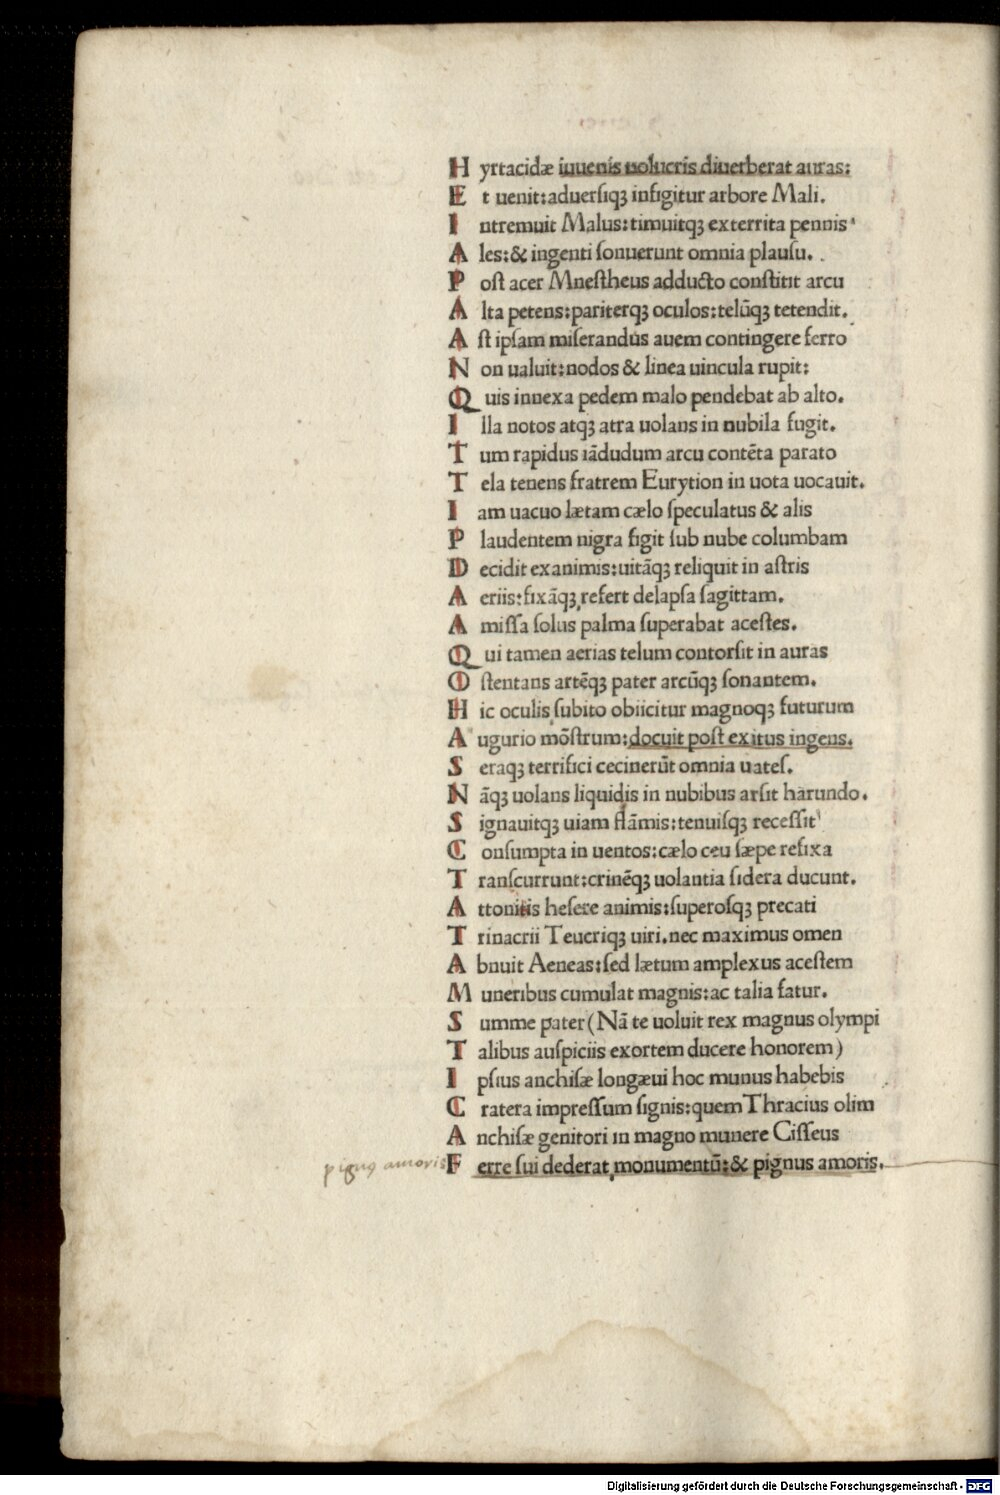 H yrtacidæ iuuenis uolucris diuerberat auras:
E t uenit:aduersiqꝫ infigitur arbore Mali.
I ntremuit Malus:timuitqꝫ exterrita pennis
A les:& ingenti ſonuerunt omnia plauſu.
P oſt acer Mneſtheus adducto conſtitit arcu
A lta petens:pariterqꝫ oculos:telūqꝫ tetendit.
A ſt ipſam miſerandus auem contingere ferro
N on ualuit:nodos & linea uincula rupit:
Q uis innexa pedem malo pendebat ab alto.
I lla notos atqꝫ atra uolans in nubila fugit.
T um rapidus iādudum arcu contēta parato
T ela tenens fratrem Eurytion in uota uocauit.
I am uacuo lætam cælo ſpeculatus & alis
P laudentem nigra figit ſub nube columbam
D ecidit exanimis:uitāqꝫ reliquit in aſtris
A eriis:fixāqꝫ refert delapſa ſagittam.
A miſſa ſolus palma ſuperabat aceſtes.
Q ui tamen aerias telum contorſit in auras
O ſtentans artēqꝫ pater arcūqꝫ ſonantem.
H ic oculis ſubito obiicitur magnoqꝫ futurum
A ugurio mōſtrum:docuit poſt exitus ingens.
S eraqꝫ terrifici cecinerūt omnia uateſ.
N āqꝫ uolans liquidis in nubibus arſit harundo.
S ignauitqꝫ uiam flāmis:tenuiſqꝫ receſſit
C onſumpta in uentos:cælo ceu ſæpe refixa
T ranſcurrunt:crinēqꝫ uolantia ſidera ducunt.
A ttonitis heſere animis:ſuperoſqꝫ precati
T rinacrii Teucriqꝫ uiri.nec maximus omen
A bnuit Aeneas:ſed lætum amplexus aceſtem
M uneribus cumulat magnis:ac talia fatur.
S umme pater(Nā te uoluit rex magnus olympi
T alibus auſpiciis exortem ducere honorem)
I pſius anchiſæ longæui hoc munus habebis
C ratera impreſſum ſignis:quem Thracius olim
A nchiſæ genitori in magno munere Ciſſeus
pignus amoris F erre ſui dederat monumentū:& pignus amoris.
Digitalisierung gefördert durch die Deutsche Forschungsgemeinschaft - DFG